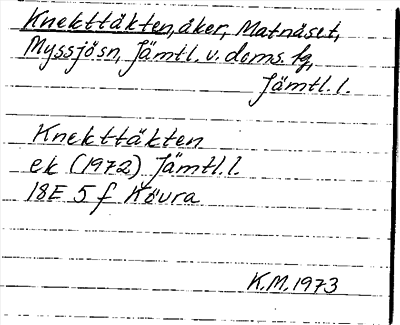 Knekttäkten, åker, Matnäset,
Myssjösn, Jämtl. v. doms. tg,
Jämtl. l.
Knekttäkten
ek (1972) Jämtl. l.
18E 5 f Kövra
K.M. 1973